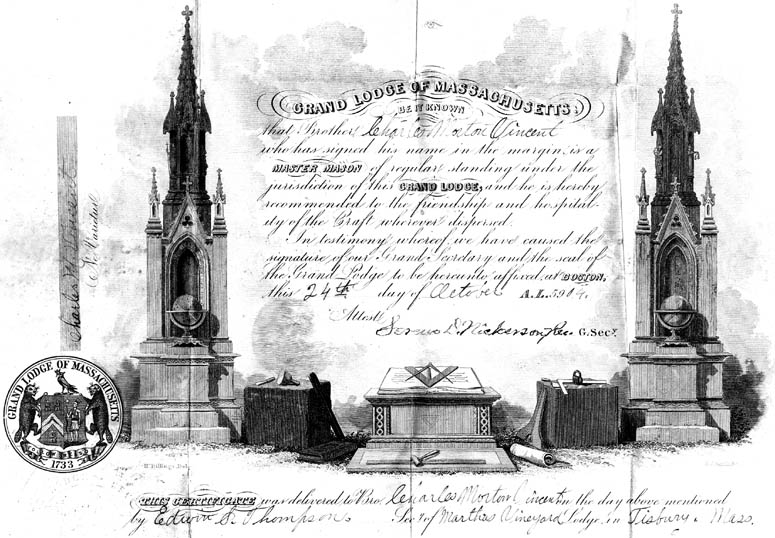 GRAND LODGE OF MASSACHUSETTS.
BE IT KNOWN
that Brother Charles Morton Vincent
who has signed his name in the margin, is a
MASTER MASON of regular standing under the
jurisdiction of this GRAND LODGE, and he is hereby
recommended to the friendship and hospital-
ity of the Craft wherever dispersed.
In testimony whereof we have caused the
signature of our Grand Secretary and the seal of
the Grand Lodge to be hereunto affixed, at BOSTON,
this 24th day of October A.L. 5904.
Attest
Sereno D. Nickerson, G. Secy
Charles M. Vincent
GRAND LODGE OF MASSACHUSETTS
1733
THIS CERTIFICATE was delivered to Bro. Charles Morton Vincent the day above mentioned
by Edwin Thompson Secy of Marthas Vineyard Lodge, in Tisbury Mass.